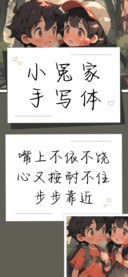 小冤家
手写体
嘴上不依不饶
心又按耐不住
步步靠近